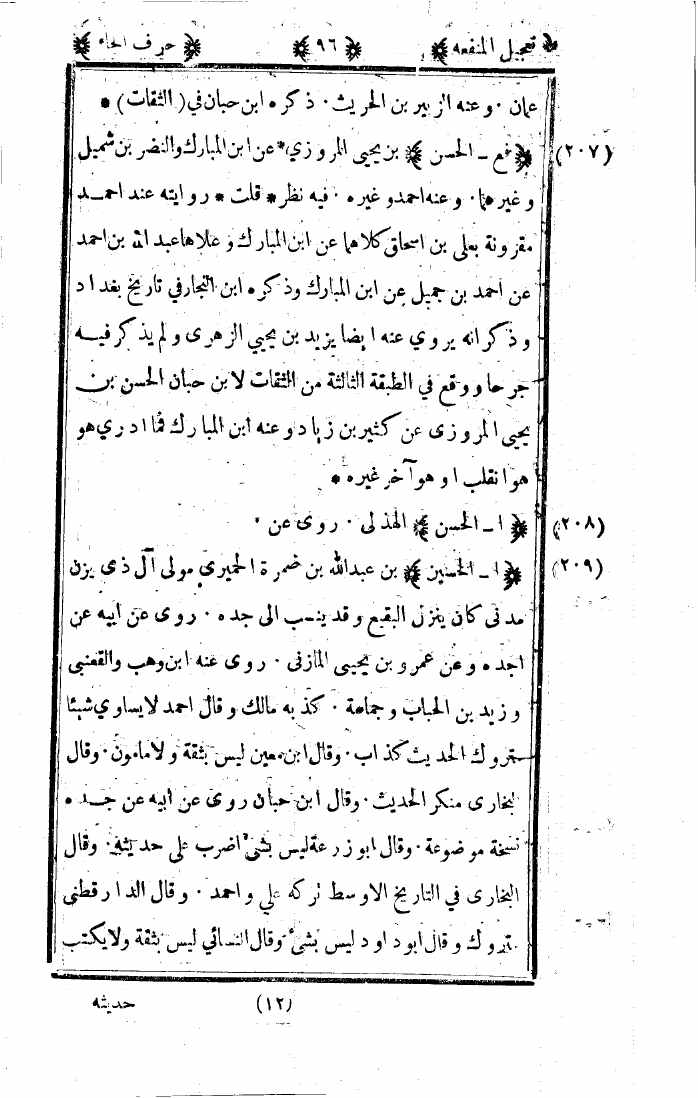 تعجيل المنفعه ﴿٩٦﴾ حرف الحاء
عمان ٠ وعنه الزبير بن الحريث ٠ ذكره ابن حبان في (الثقات) *
(٢٠٧) ﴿فع ـ الحسن﴾ بن يحيى المروزي * عن ابن المبارك والنضر بن شميل
وغيرهما ٠ وعنه احمد وغيره ٠ فيه نظر * قلت * روايته عند احمد
مقرونة بعلي بن اسحاق كلاهما عن ابن المبارك وعلاها عبد الله بن احمد
عن احمد بن جميل عن ابن المبارك وذكره ابن النجار في تاريخ بغداد
وذكر انه يروي عنه ايضا يزيد بن يحيى الزهرى ولم يذكر فيه
جرحا ووقع في الطبقة الثالثة من الثقات لابن حبان الحسن بن
يحيى المروزى عن كثير بن زياد وعنه ابن المبارك فما ادري هو
هو انقلب او هو آخر غيره *
(٢٠٨) ﴿ا ـ الحسن﴾ الهذلى ٠ روى عن ٠
(٢٠٩) ﴿ا ـ الحسين﴾ بن عبدالله بن ضمرة الحميري مولى آل ذي يزن
مدنى كان ينزل البقيع وقد ينسب الى جده ٠ روى عن ابيه عن
جده وعن عمرو بن يحيى المازنى ٠ روى عنه ابن وهب والقعنبى
وزيد بن الحباب وجماعة ٠ كذبه مالك وقال احمد لا يساوي شيئا
متروك الحديث كذاب ٠ وقال ابن معين ليس بثقة ولا مامون ٠ وقال
البخارى منكر الحديث ٠ وقال ابن حبان روى عن ابيه عن جده
نسخة موضوعة ٠ وقال ابوزرعة ليس بشئ اضرب على حديثه ٠ وقال
البخارى في التاريخ الاوسط تركه علي واحمد ٠ وقال الدارقطنى
متروك وقال ابوداود ليس بشئ وقال النسائي ليس بثقة ولا يكتب
(١٢) حديثه